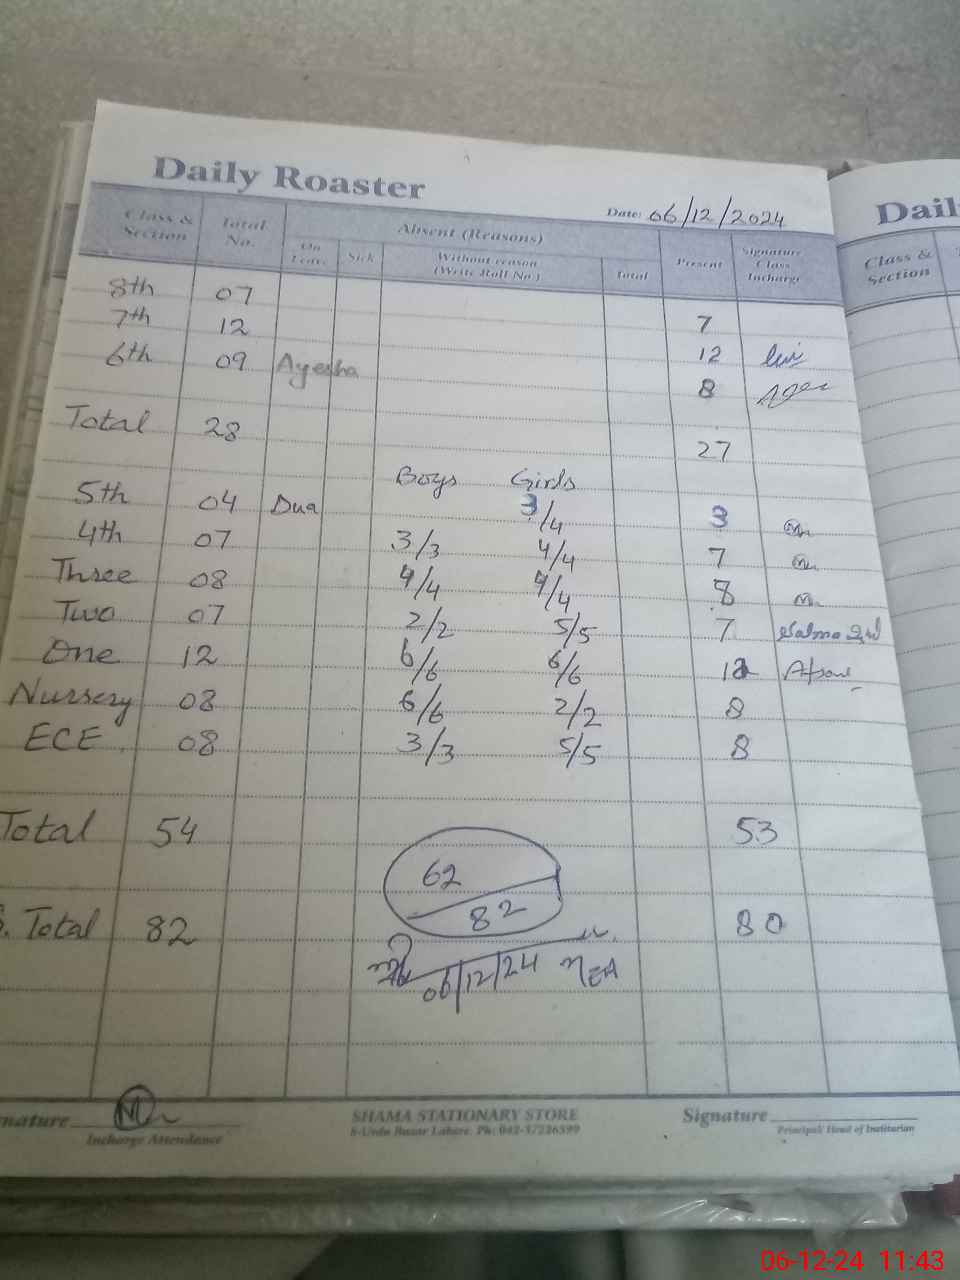 Daily Roaster
Date: 06/12/2024
Class & Section Total No. Absent (Reasons) Present Signature Class Incharge
On Leave Sick Without reason (Write Roll No.) Total
8th 07 7
7th 12 12
6th 09 Ayesha 8
Total 28 27
Boys Girls
5th 04 Dua 3/4 3
4th 07 3/3 4/4 7
Three 08 4/4 4/4 8
Two 07 2/2 5/5 7 Salma
One 12 6/6 6/6 12
Nursery 08 6/6 2/2 8
ECE 08 3/3 5/5 8
Total 54 53
62
82
G. Total 82 80
06/12/24 MEA
nature Incharge Attendance
SHAMA STATIONARY STORE
8-Urdu Bazar Lahore. Ph: 042-37226599
Signature Principal/ Head of Institution
Dail
Class & Section
06-12-24 11:43